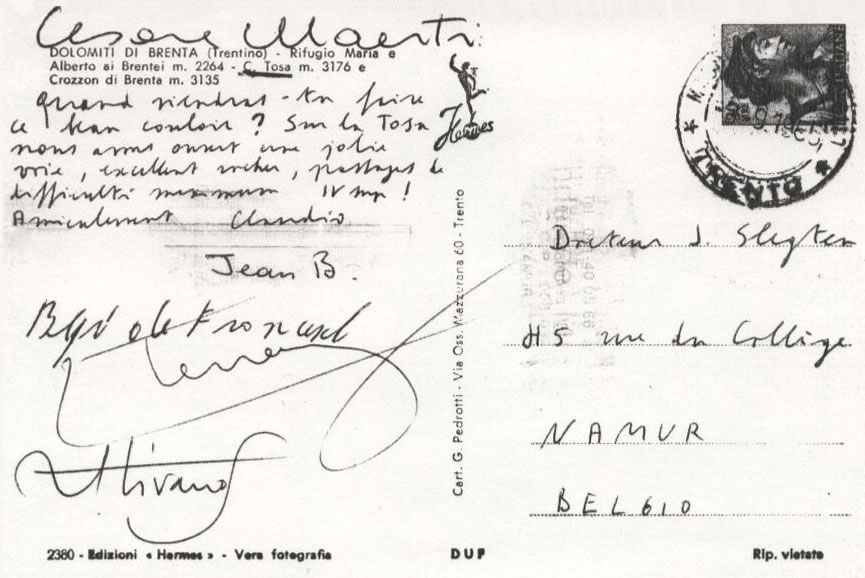 Cesare Maestri
DOLOMITI DI BRENTA (Trentino) - Rifugio Maria e
Alberto ai Brentei m. 2264 - C. Tosa m. 3176 e
Crozzon di Brenta m. 3135
Quand viendras-tu faire
ce beau couloir ? Sur la Tosa
nous avons ouvert une jolie
voie, excellent rocher, passages de
difficulté maximum IV sup !
Amicalement Claudio
Jean B.
Hermes
Cart. G. Pedrotti - Via Oss. Mazzurana 60 - Trento
TRENTO
Docteur J. Slegten
45 rue du Collège
NAMUR
BELGIO
2380 - Edizioni « Hermes » - Vera fotografia
DUF
Rip. vietata